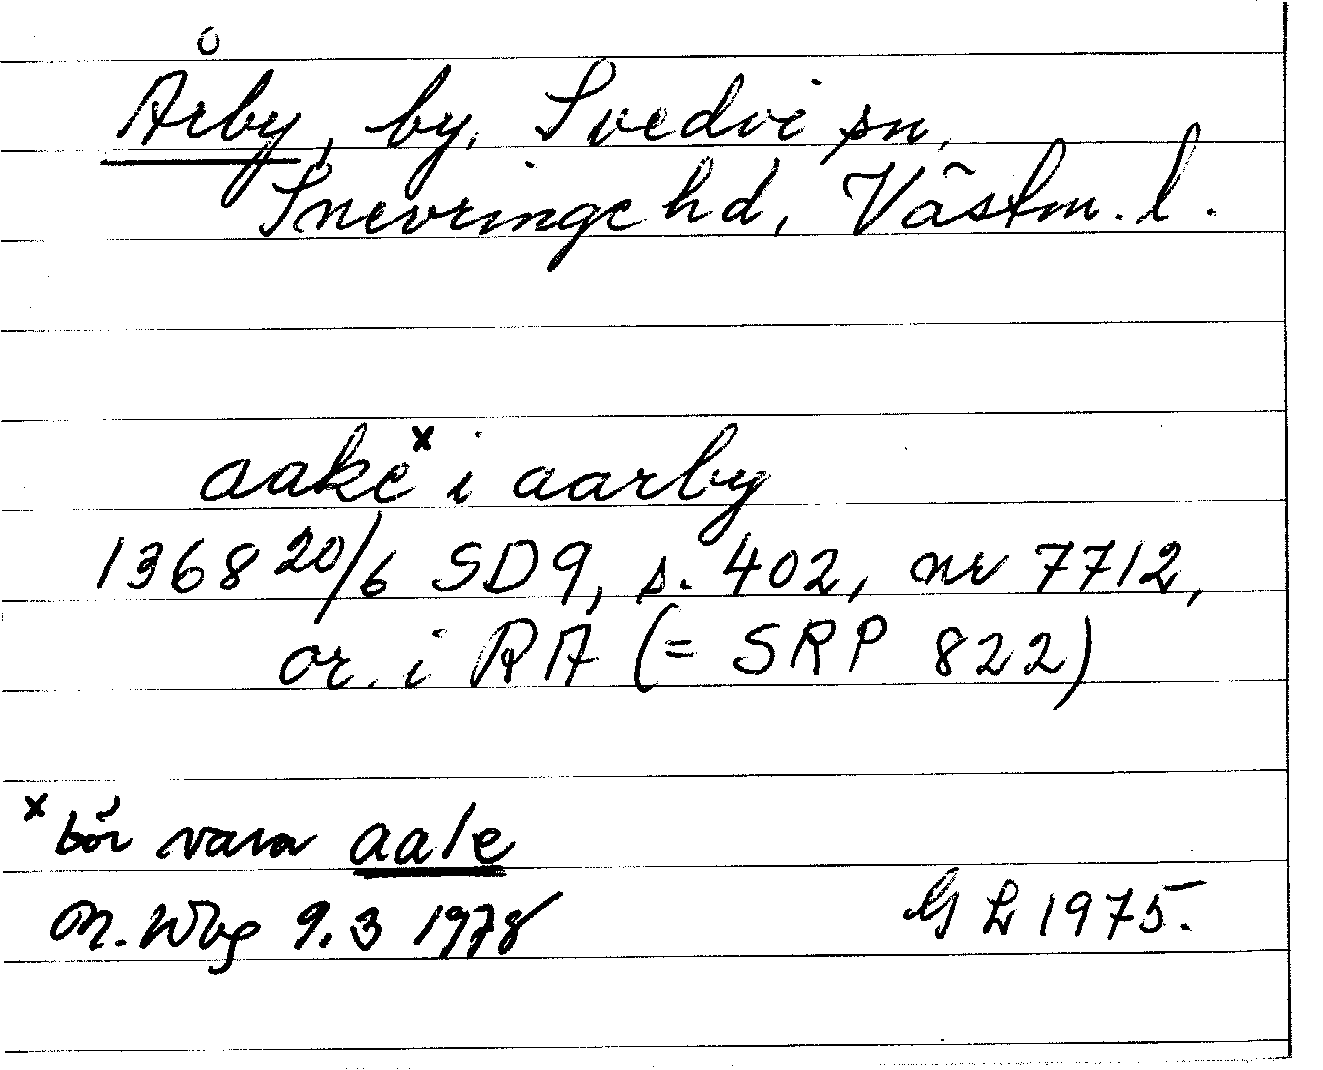 Årby, by, Svedvi sn,
Snevringe hd, Västm. l.
aake x i aarby
1368 20/6 SD 9, s. 402, nr 7712,
or. i RA (= SRP 822)
x bör vara aale
M. Wbg 9.3 1978
GL 1975.